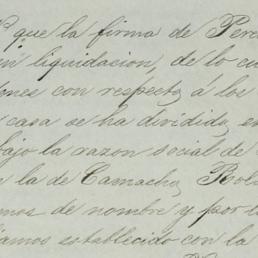 que la firma de Pere
en liquidacion, de lo cu
ones con respecto á los
casa se ha dividido en
bajo la razon social de
la de Camacho, Rol
mos de nombre y por
iamos establecido con la